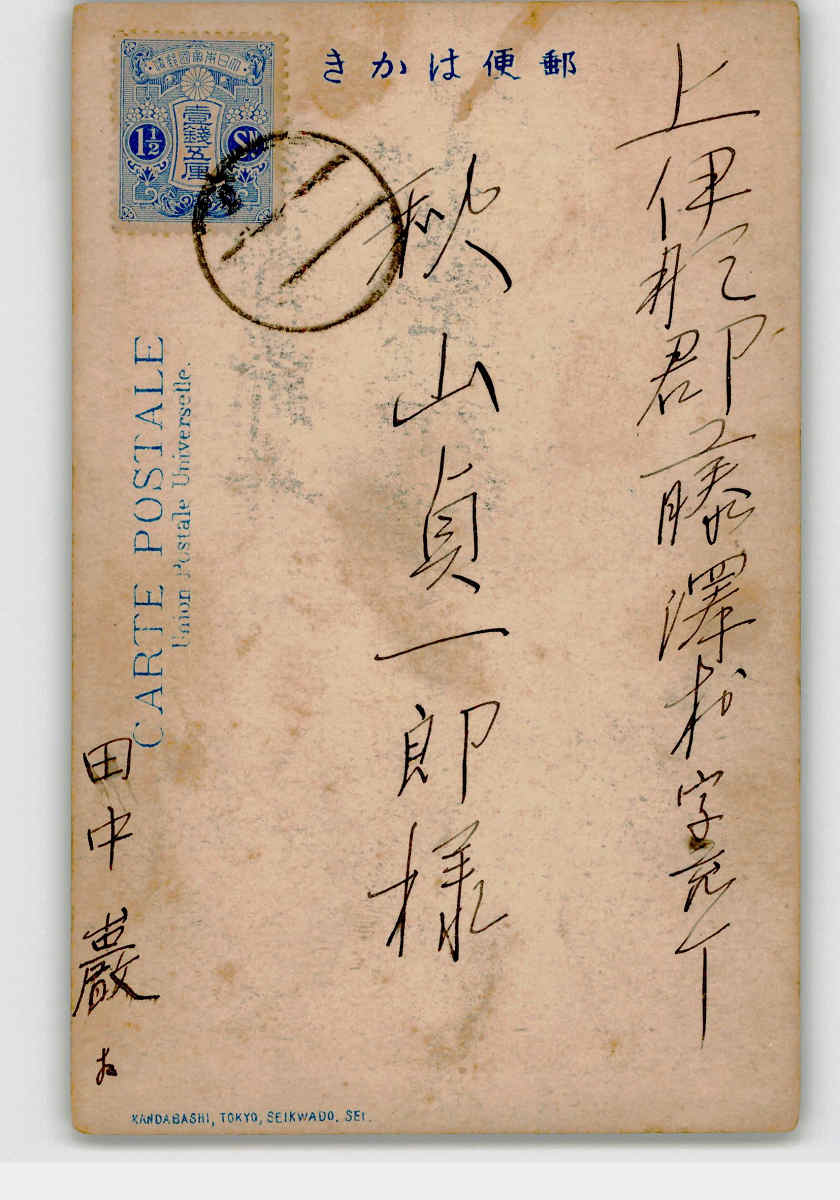 郵便はかき
大日本帝國郵便
壹錢五厘
1½ Sn
CARTE POSTALE
Union Postale Universelle.
上伊那郡藤澤村字荒町
秋山貞一郎様
田中巖
KANDABASHI, TOKYO, SEIKWADO. SEI.